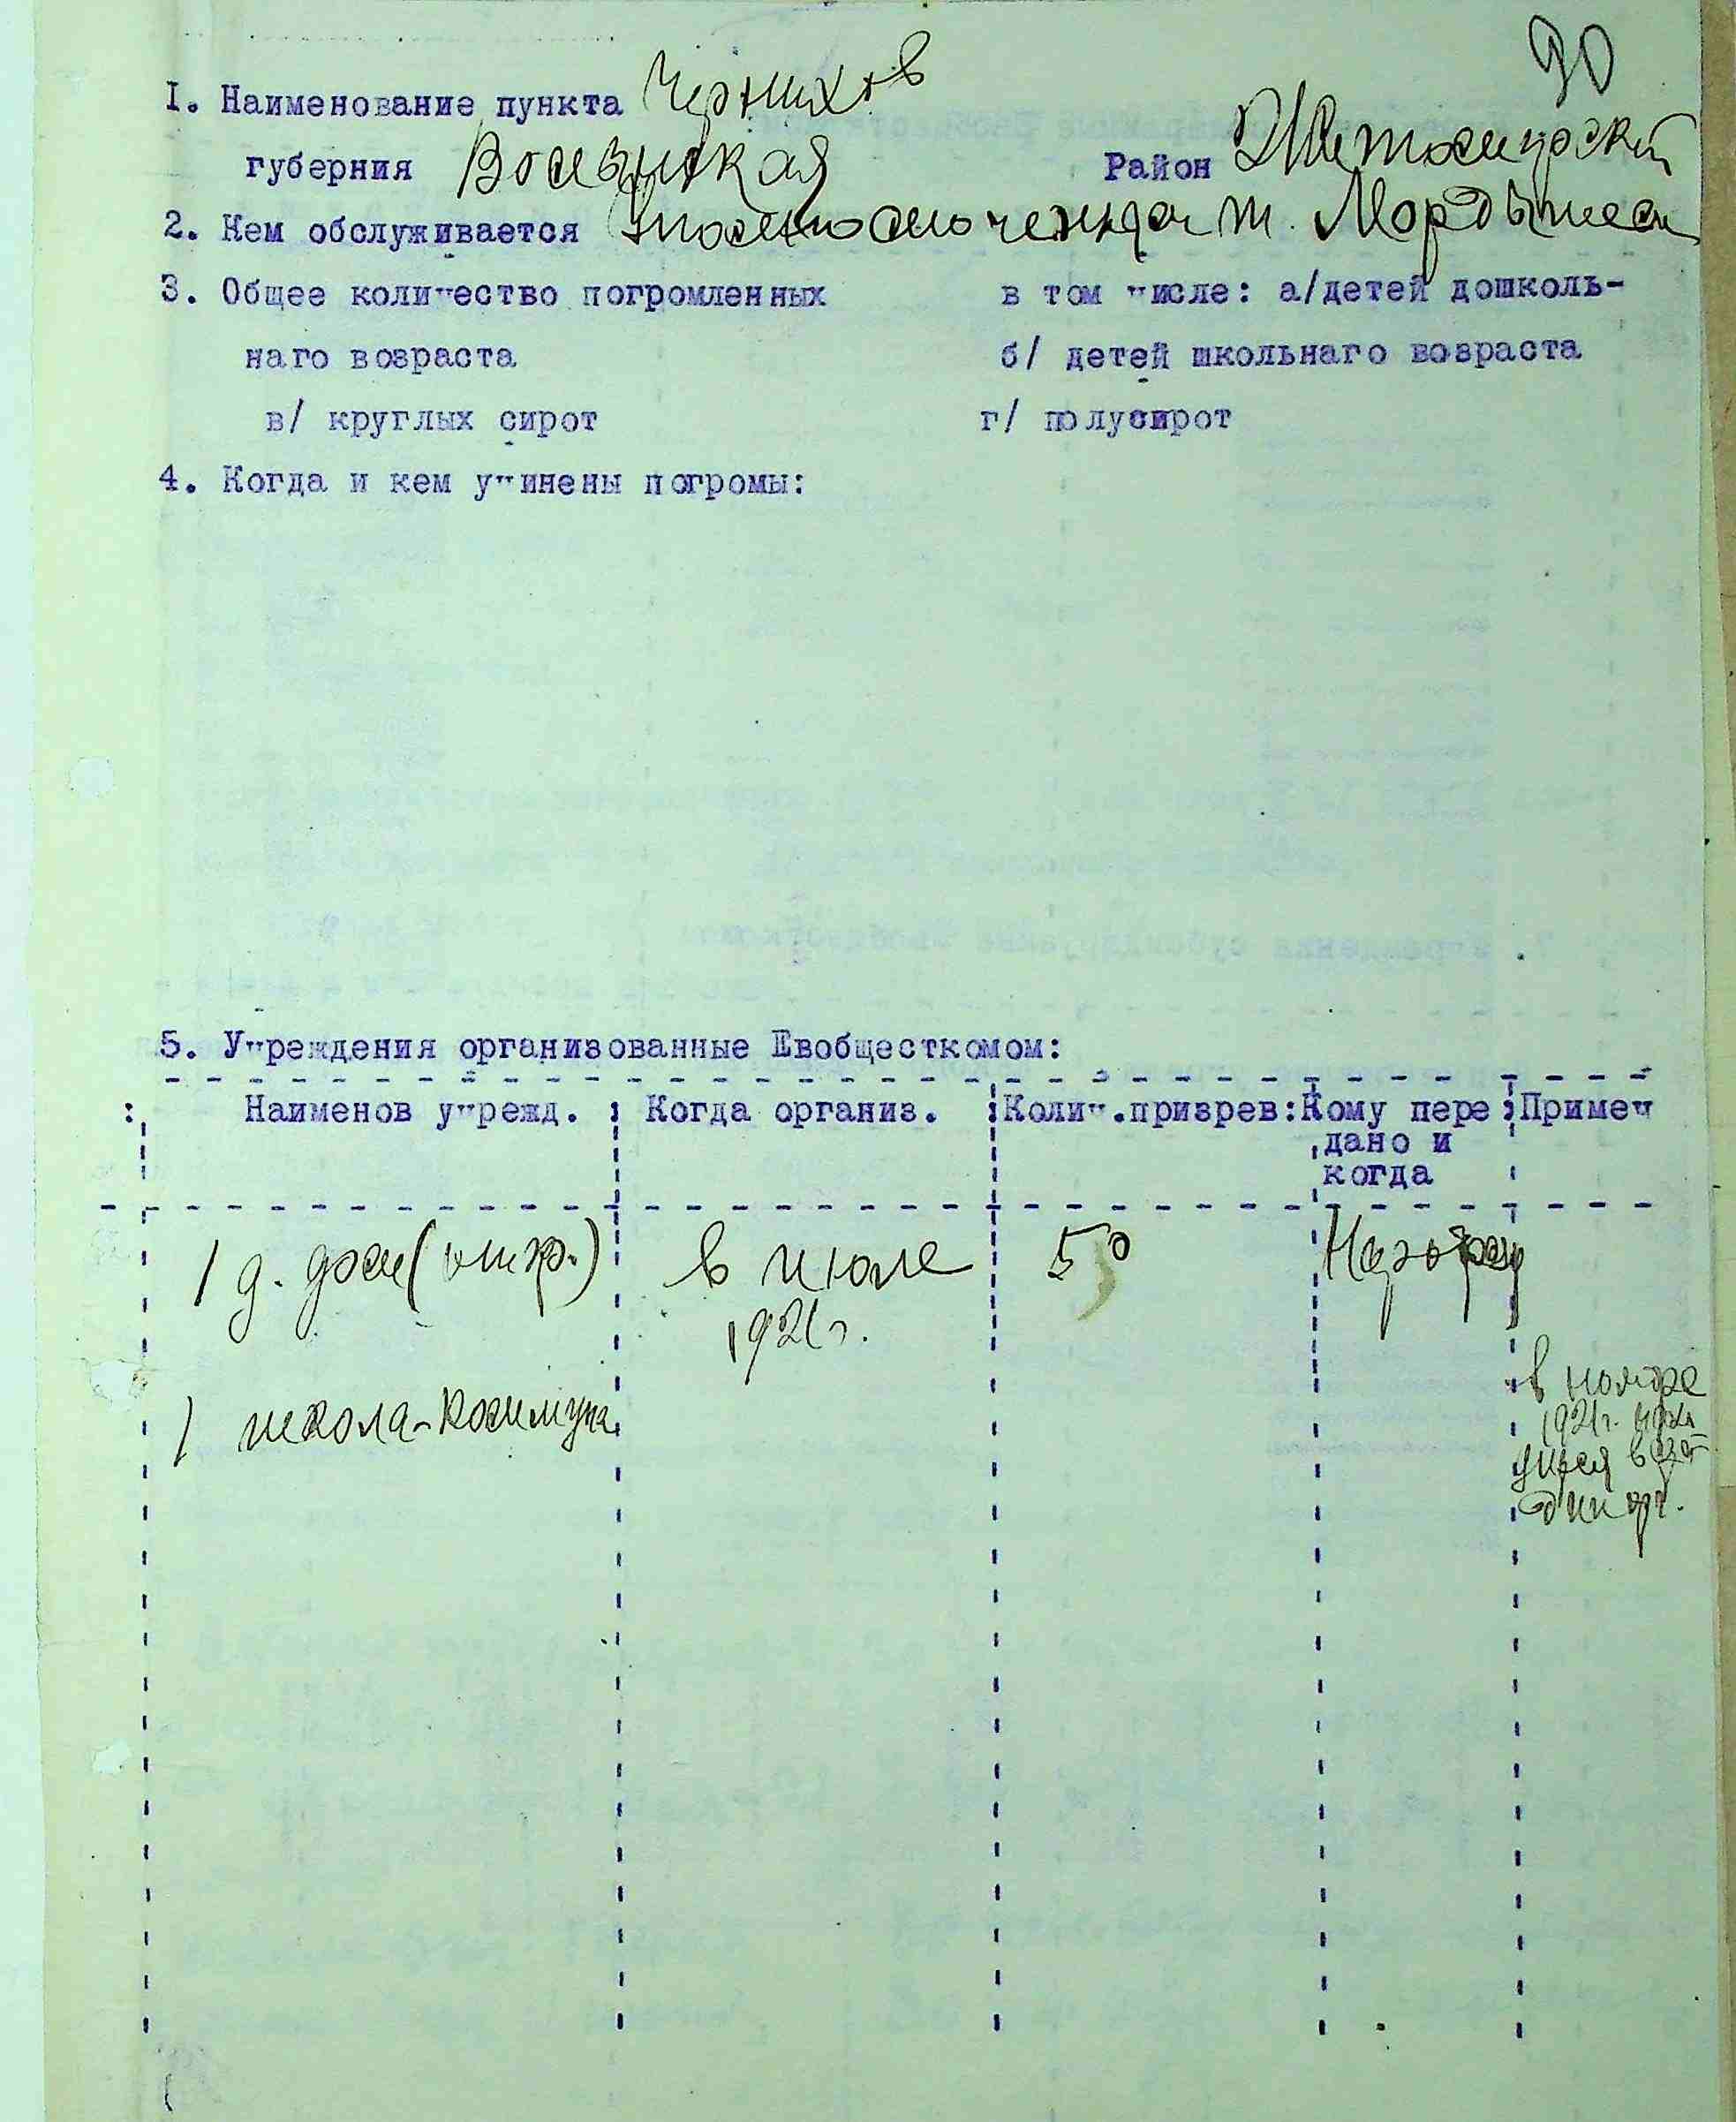 90
I. Наименование пункта Черняхов
губерния Волынская Район Житомирский
2. Кем обслуживается Уполномоченным т.
3. Общее количество погромленных в том числе: а/детей дошколь-
наго возраста б/ детей школьнаго возраста
в/ круглых сирот г/ полусирот
4. Когда и кем учинены погромы:
5. Учреждения организованные Евобщесткомом:
: Наименов учрежд. : Когда организ. :Колич.призрев:Кому пере :Примеч
дано и
когда
1 д. дом (откр.) в июле 50 Наробразу
1921 г.
в ноябре
1 школа-коммуна 1921 г.